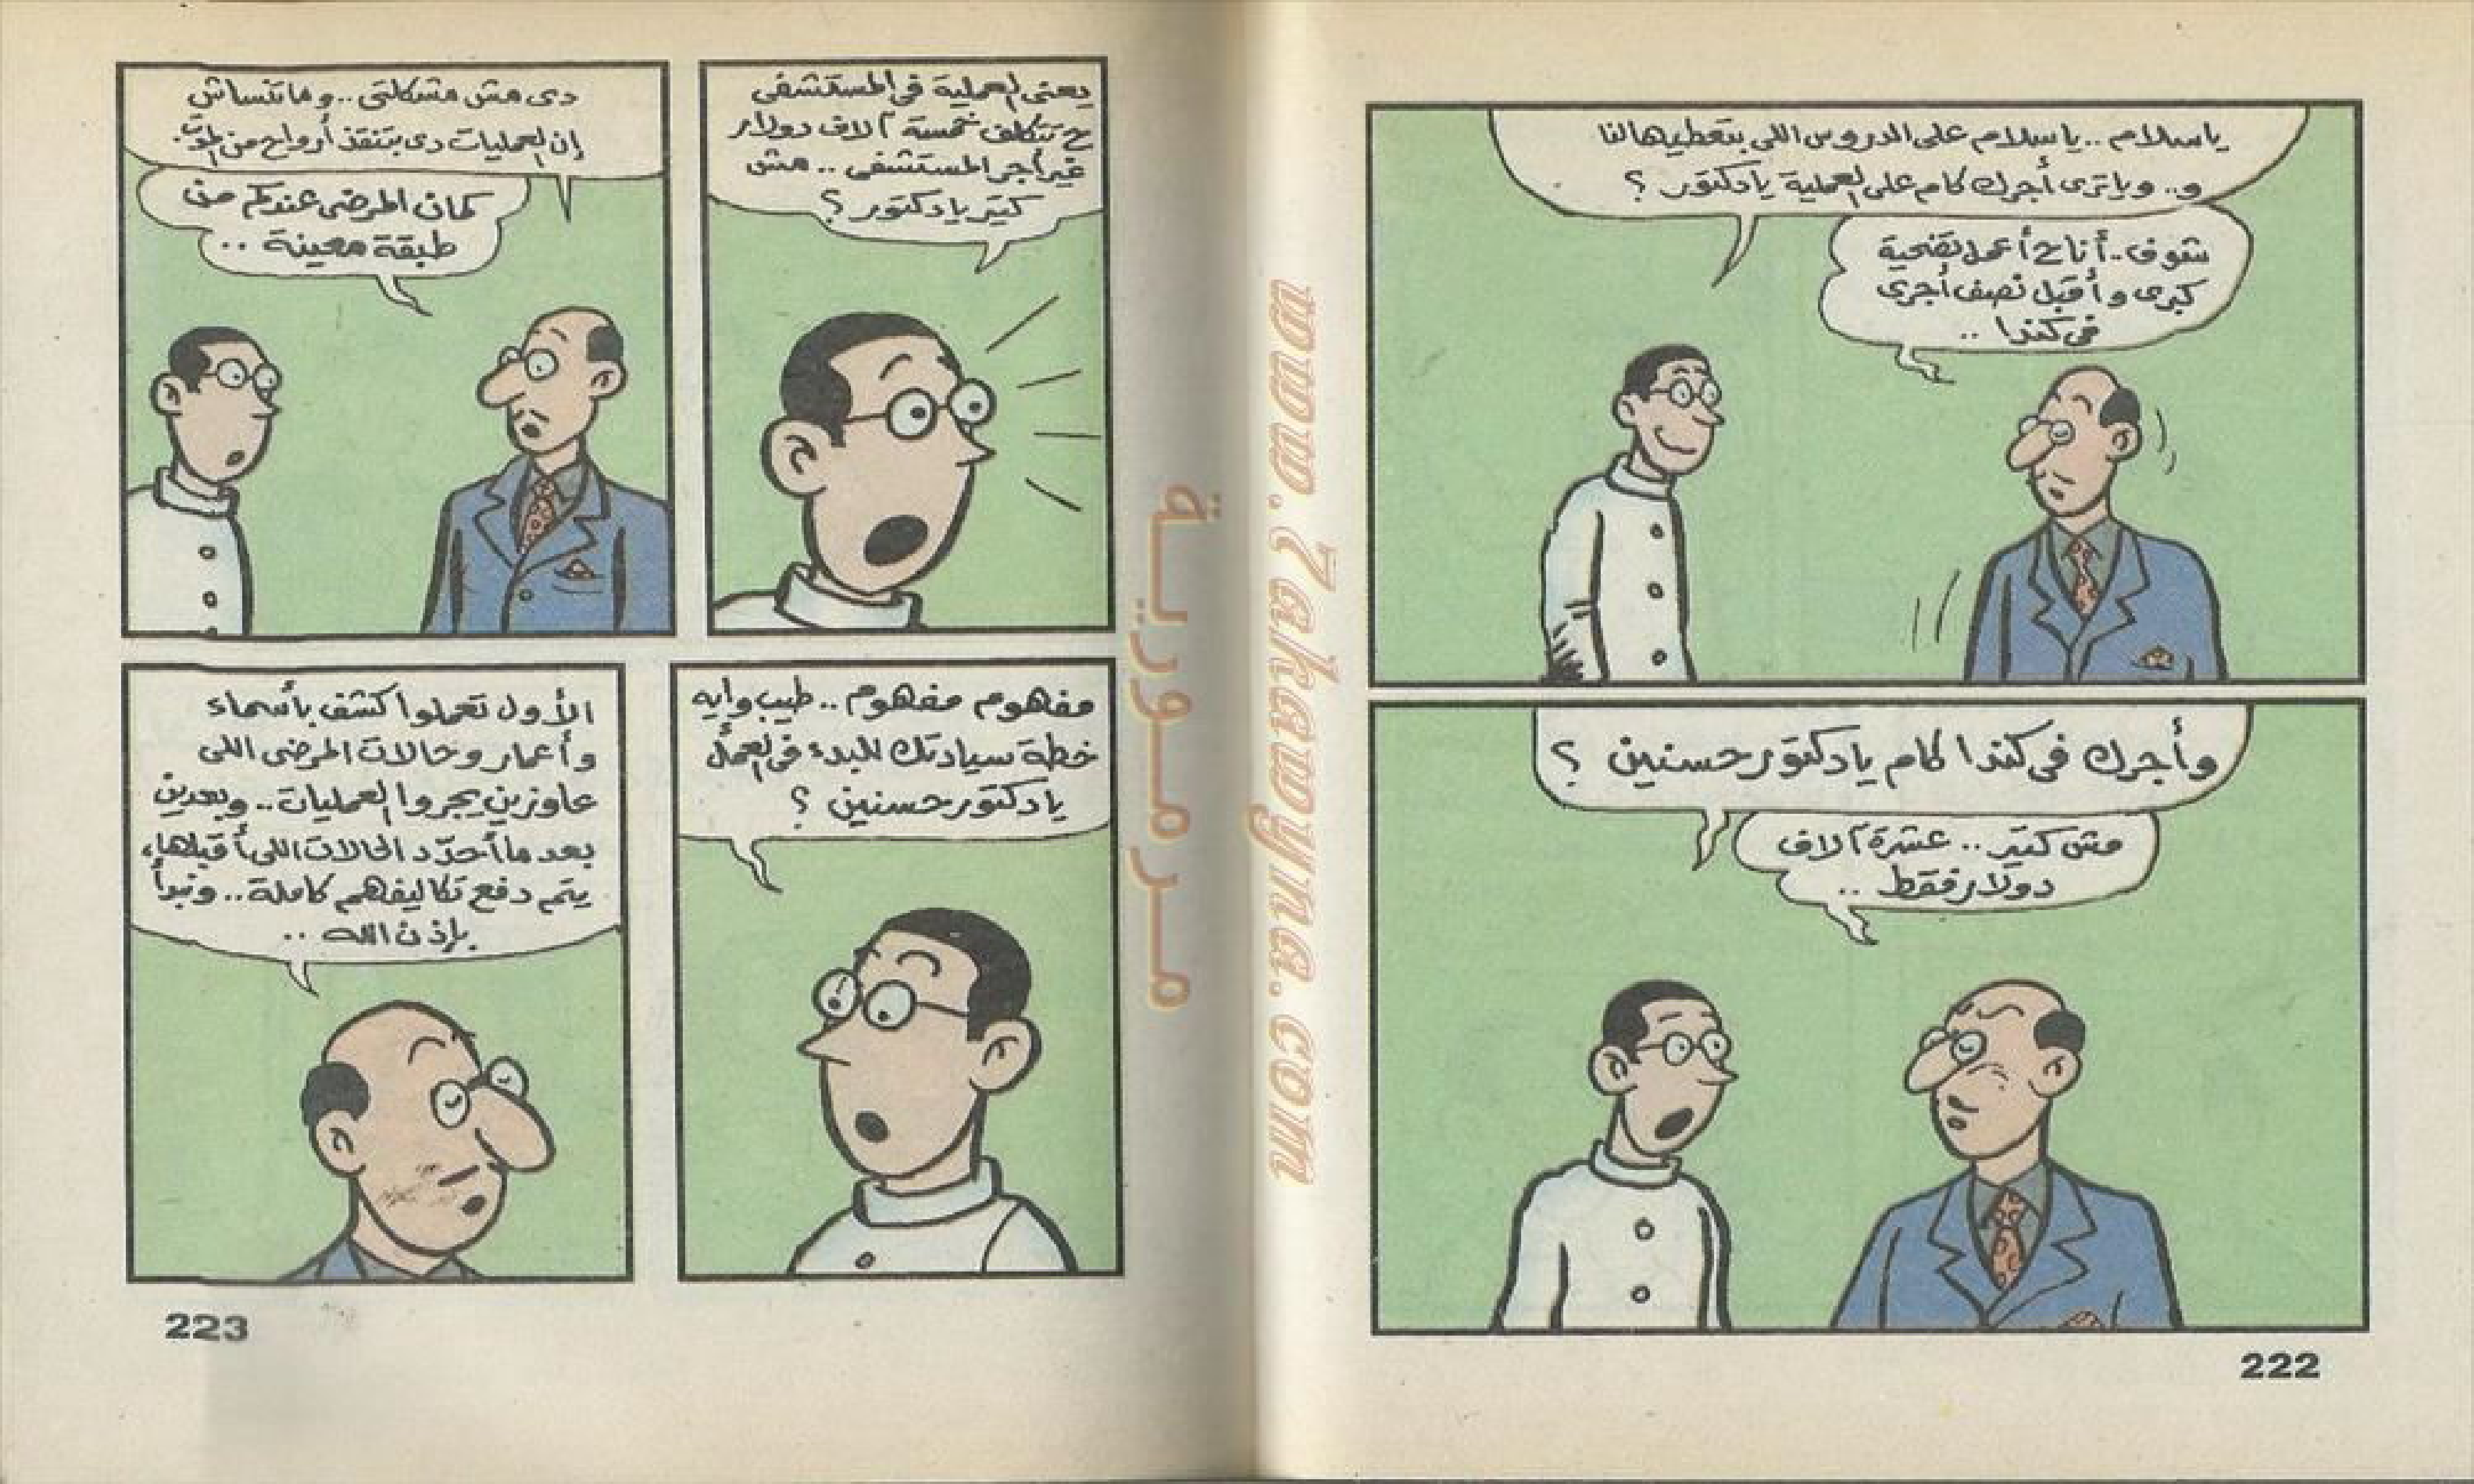 ياسلام .. ياسلام على الدروس اللى بتعطيهالنا
و.. وياترى أجرك كام على العملية يادكتور ؟
شوف .. أنا ح أعمل تضحية
كبرى وأقبل نصف أجرى
فى كندا ..
وأجرك فى كندا كام يادكتور حسنين ؟
مش كتير .. عشرة آلاف
دولار فقط ..
222
يعنى العملية فى المستشفى
ح تتكلف خمسة آلاف دولار
غير أجر المستشفى .. مش
كتير يادكتور ؟
دى مش مشكلتى .. وماتنساش
إن العمليات دى بتنقذ أرواح من الموت.
كمان المرضى عندكم من
طبقة معينة ..
مفهوم مفهوم .. طيب وايه
خطة سيادتك للبدء فى العمل
يادكتور حسنين ؟
الأول تعملوا كشف بأسماء
وأعمار وحالات المرضى اللى
عاوزين يجروا العمليات .. وبعدين
بعد ما أحدّد الحالات اللى أقبلها،
يتم دفع تكاليفهم كاملة .. ونبدأ
بإذن الله ..
223
مرمورية
www.7akawyna.com